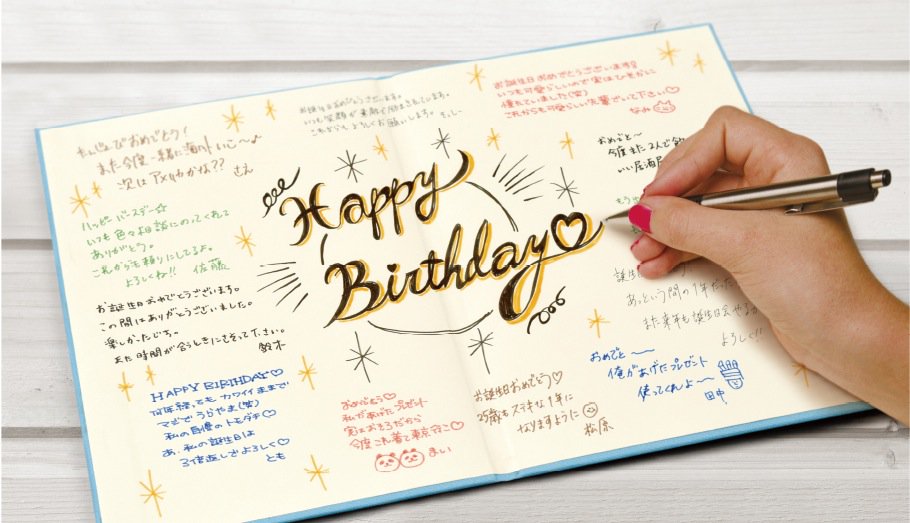 Happy
Birthday♡
たんじょうびおめでとう!
また今度一緒に海外いこ〜♪
次はアメリカかな?? さえ
ハッピーバースデー☆
いつも色々相談にのってくれて
ありがとう。
これからも頼りにしてるよ。
よろしくね!! 佐藤
お誕生日おめでとうございます。
この間はありがとうございました。
楽しかったです。
また時間が合うときにさそって下さい。
鈴木
HAPPY BIRTHDAY♡
何年経っても カワイイままで
マジでうらやま(笑)
私の自慢のトモダチ♡
あ、私の誕生日は
3倍返しでよろしく♡
とも
お誕生日おめでとうございます。
いつも笑顔が素敵で励まされています。
これからもよろしくお願いします。
おめでとう♡
私があげたプレゼント
実はおそろだから
今度これ着て東京行こ♡
まい
お誕生日おめでとうございます
いつも可愛らしいので実はひそかに
憧れていました(笑)
これからも可愛らしい先輩でいて下さい♡
なみ
おめでと〜
今度また2人で飲
いい居酒屋
もう
誕生
あっという間の1年だった
また来年も誕生日会やるか
よろしく!!
おめでと〜
俺があげたプレゼント
使ってくれよ〜
田中
お誕生日おめでとう♡
25歳もステキな1年に
なりますように
松原